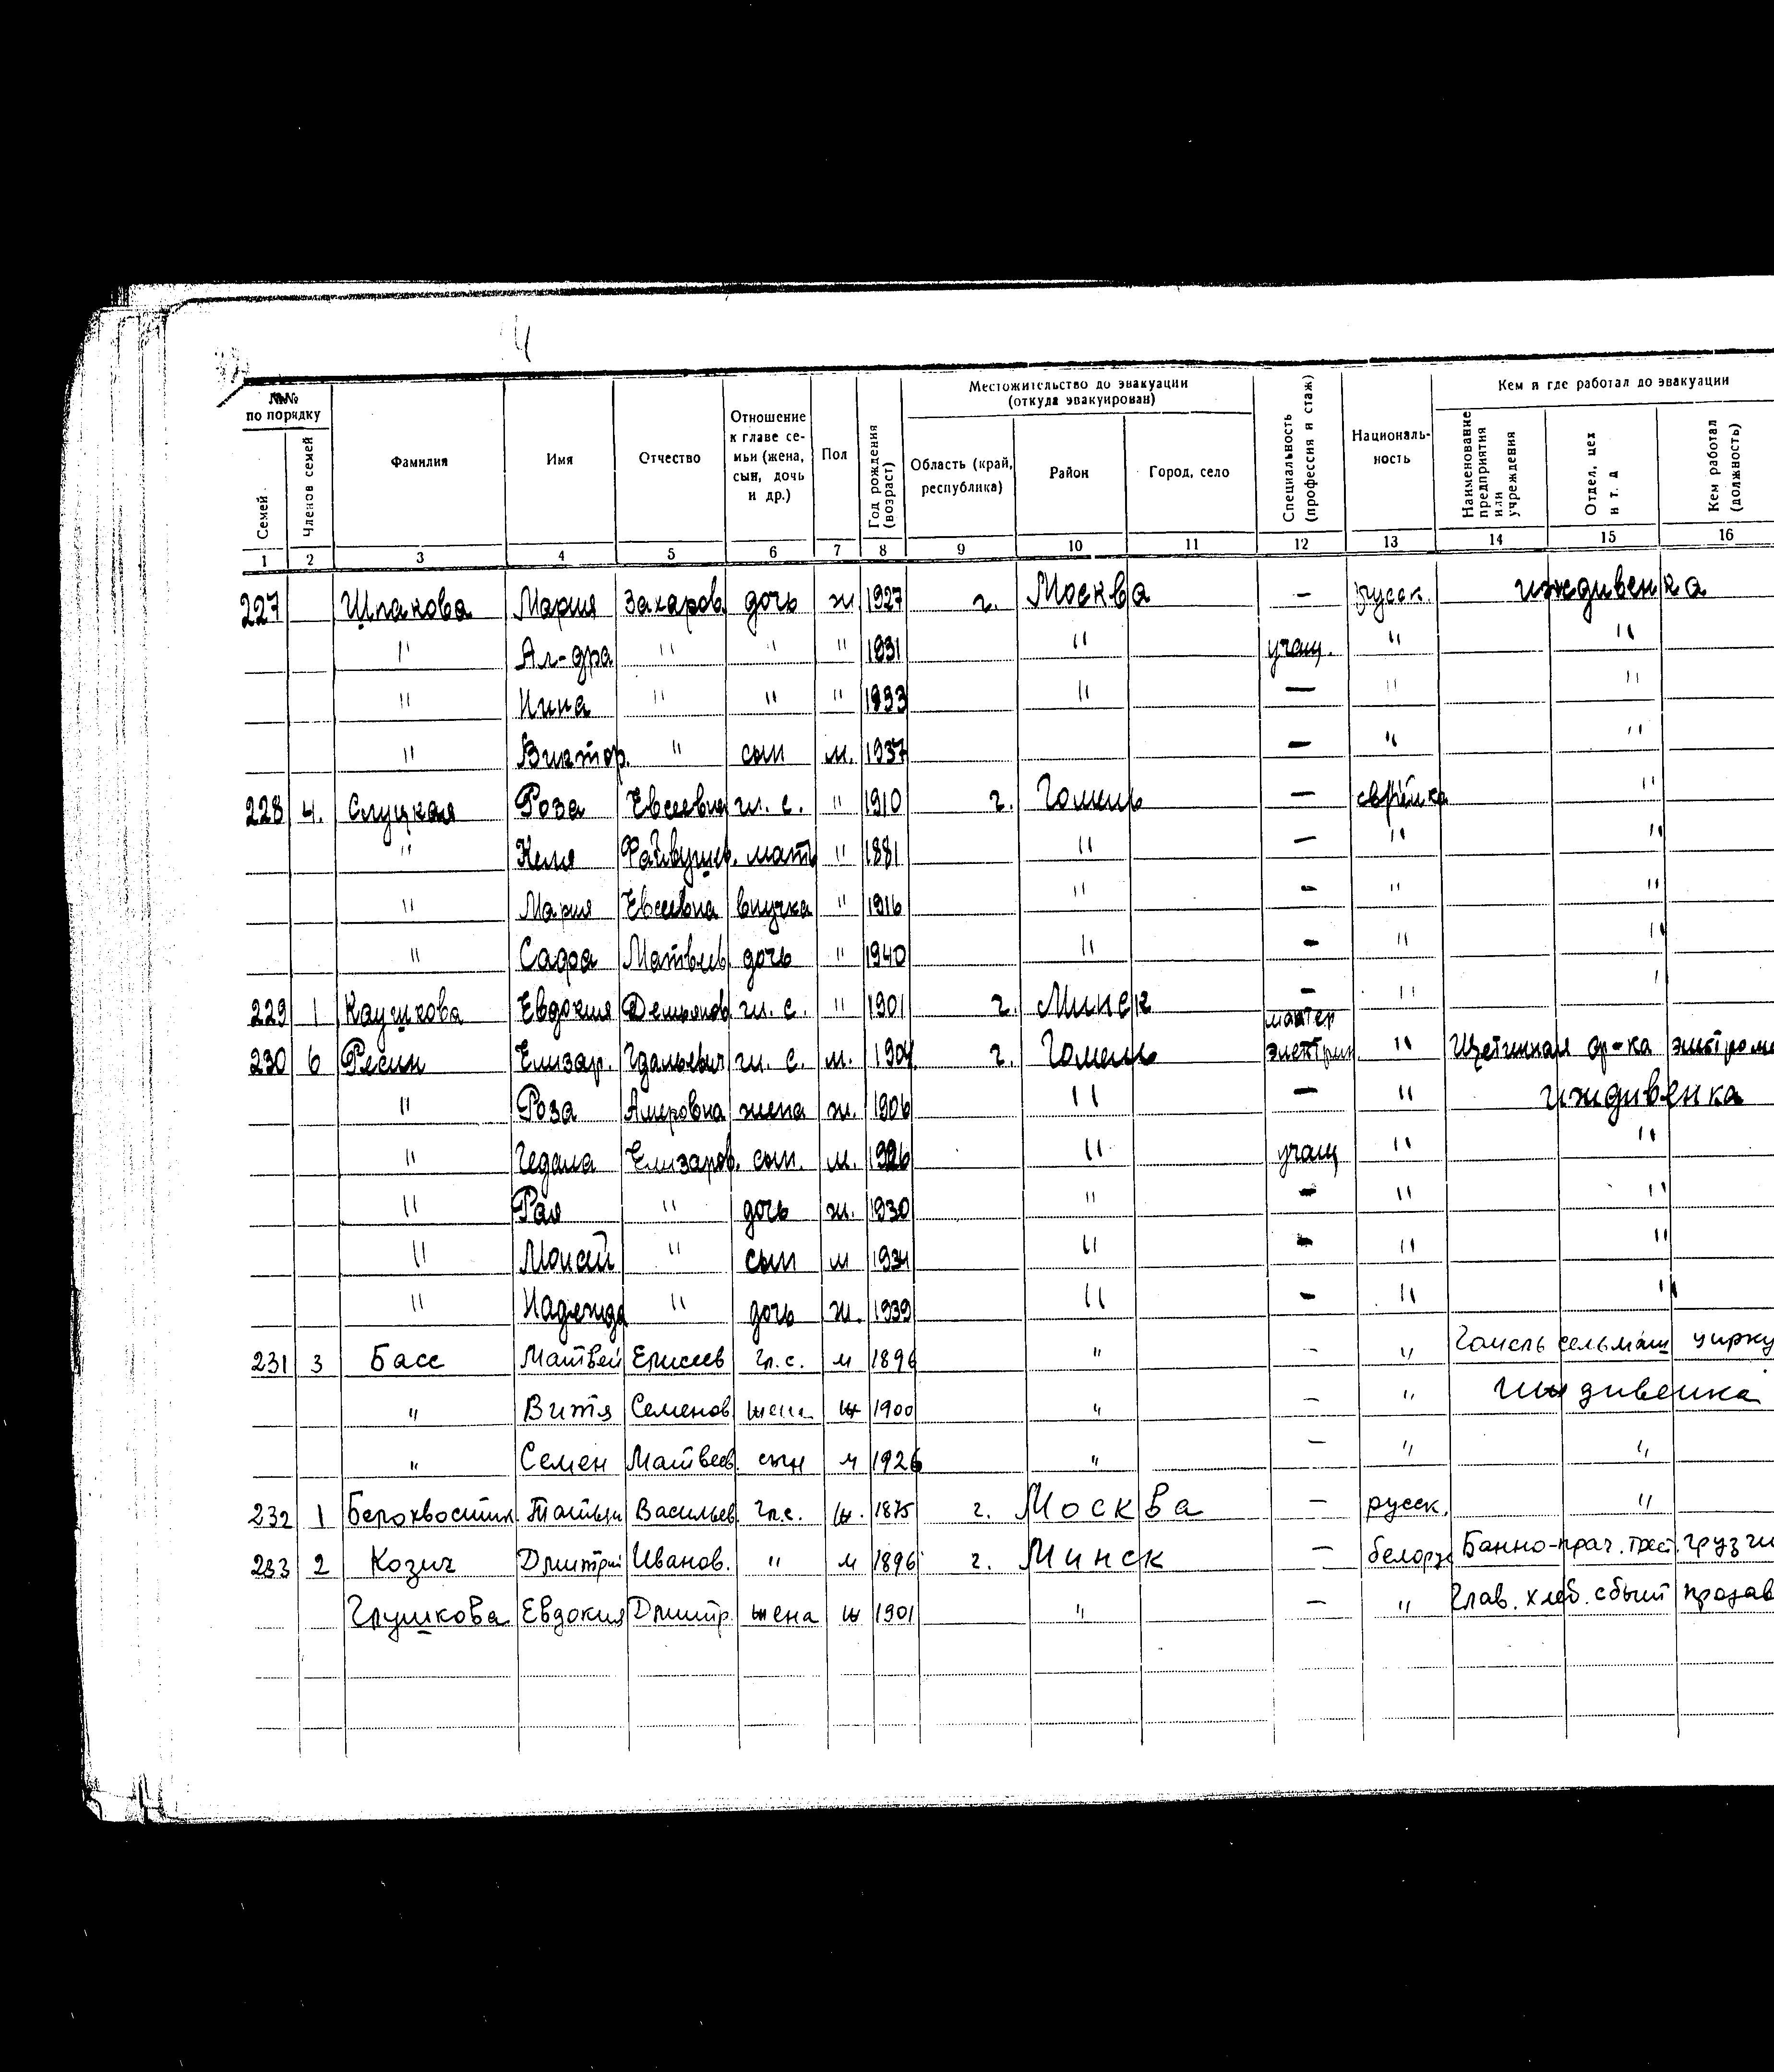 4
№№ по порядку
Семей
Членов семей
Фамилия
Имя
Отчество
Отношение к главе семьи (жена, сын, дочь и др.)
Пол
Год рождения (возраст)
Местожительство до эвакуации (откуда эвакуирован)
Область (край, республика)
Район
Город, село
Специальность (профессия и стаж)
Националь-ность
Кем и где работал до эвакуации
Наименование предприятия или учреждения
Отдел, цех и т. д
Кем работал (должность)
1 2 3 4 5 6 7 8 9 10 11 12 13 14 15 16
227 Шпакова Мария Захаров. дочь ж 1927 г. Москва — русск. иждивенка
" Ал-дра " " " 1931 " учащ. " "
" Нина " " " 1933 " — " "
" Виктор. " сын м. 1937 — " "
228 4. Слуцкая Роза Евсеевна гл. с. " 1910 г. Гомель — еврейка "
" Файвушев. мать " 1881 " — " "
" Мария Евсеевна внучка " 1916 " — " "
" Матвеев. дочь " 1940 " — " "
229 1 Каушкова Евдокия Демьянов. гл. с. " 1901 г. Минск — " "
230 6 Ресин Елизар. Гдальевич гл. с. м. 1904 г. Гомель мастер электрик " Щетинная ф-ка электром
" Роза жена ж. 1906 " — " иждивенка
" Гедала Елизаров. сын. м. 1926 " учащ " "
" Рая " дочь ж. 1930 " — " "
" Моисей " сын м 1934 " — " "
" Надежда " дочь ж. 1939 " — " "
231 3 Басс Матвей Елисеев гл. с. м 1896 " — " Гомель сельмаш цирку
" Витя Семенов жена ж 1900 " — " иждивенка
" Семен Матвеев. сын м 1926 " — " "
232 1 Белохвостик. Татьян Васильев гл. с. ж. 1875 г. Москва — русск. "
233 2 Козич Дмитрий Иванов. " м 1896 г. Минск — белорус Банно-прач. трест. грузчи
Глушкова Евдокия Дмитр. жена ж 1901 " — " Глав. хлеб. сбыт продав